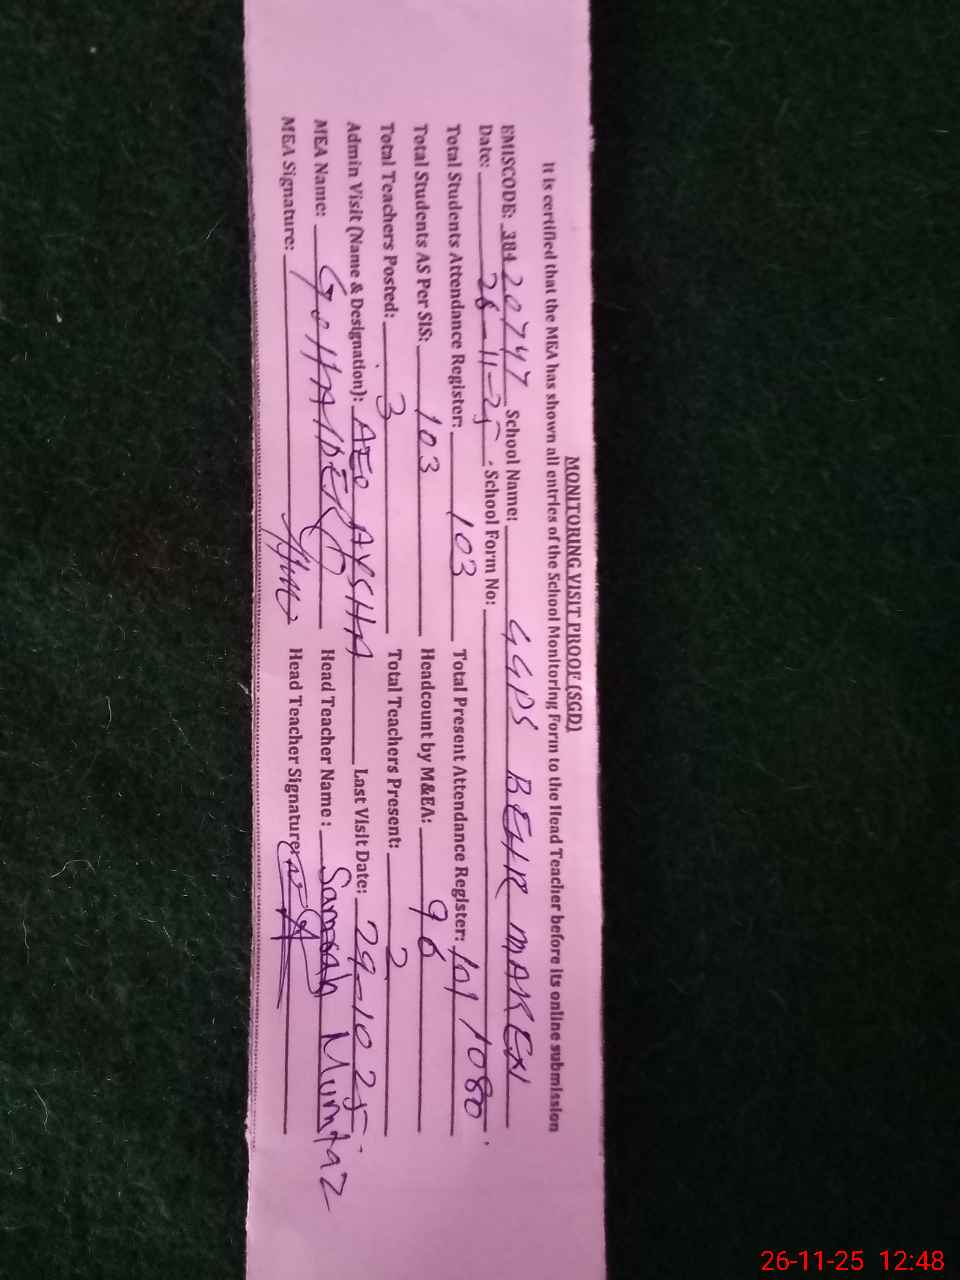 MONITORING VISIT PROOF (SGD)
It is certified that the MEA has shown all entries of the School Monitoring Form to the Head Teacher before its online submission
EMISCODE: 384 20747 School Name: GGPS BEHR MAKEXI
Date: 26-11-25 School Form No:
Total Students Attendance Register: 103 Total Present Attendance Register: 101 1080
Total Students AS Per SIS: 103 Headcount by M&EA: 96
Total Teachers Posted: 3 Total Teachers Present: 2
Admin Visit (Name & Designation): AEO AYSHA Last Visit Date: 29-10-25
MEA Name: HAIDER Head Teacher Name: Samrah Mumtaz
MEA Signature: Head Teacher Signature:
26-11-25 12:48